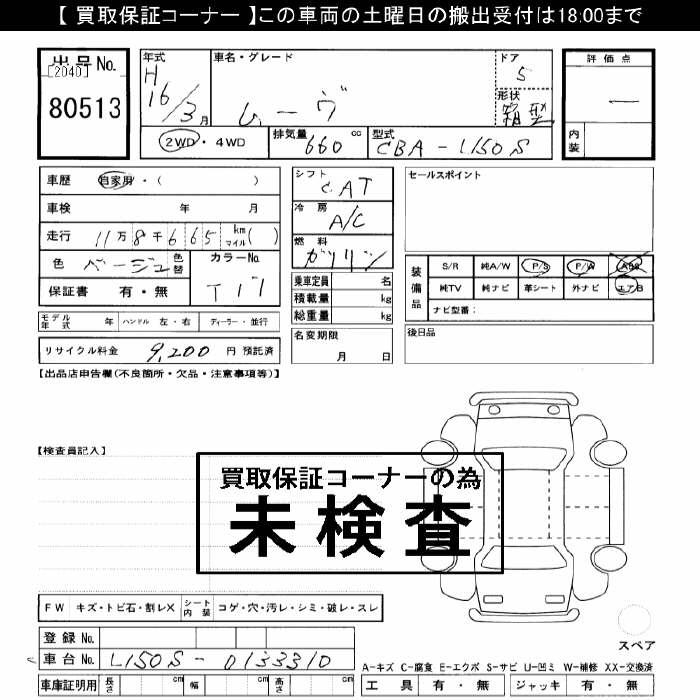 【 買取保証コーナー 】この車両の土曜日の搬出受付は18:00まで
出品No.
[2040]
80513
年式
H
16/3月
車名・グレード
ムーヴ
ドア
5
形状
箱型
評価点
―
内装
2WD・4WD
排気量 660 cc
型式 CBA - L150S
車歴 自家用・( )
車検 年 月
走行 11万8千665 km マイル( )
色 ベージュ 色替
カラーNo. T17
保証書 有・無
モデル年式 年 ハンドル 左・右 ディーラー・並行
リサイクル料金 9,200 円 預託済
シフト CAT
冷房 A/C
燃料 ガソリン
乗車定員 名
積載量 kg
総重量 kg
名変期限
月 日
セールスポイント
装備品
S/R 純A/W P/S P/W ABS
純TV 純ナビ 革シート 外ナビ エアB
ナビ型番:
後日品
【出品店申告欄(不良箇所・欠品・注意事項等)】
【検査員記入】
買取保証コーナーの為
未検査
FW キズ・トビ石・割レX シート内装 コゲ・穴・汚レ・シミ・破レ・スレ
登録No.
車台No. L150S - 0133310
車庫証明用 長さ cm 幅 cm 高さ cm
スペア
A-キズ C-腐食 E-エクボ S-サビ U-凹ミ W-補修 XX-交換済
工具 有・無 ジャッキ 有・無